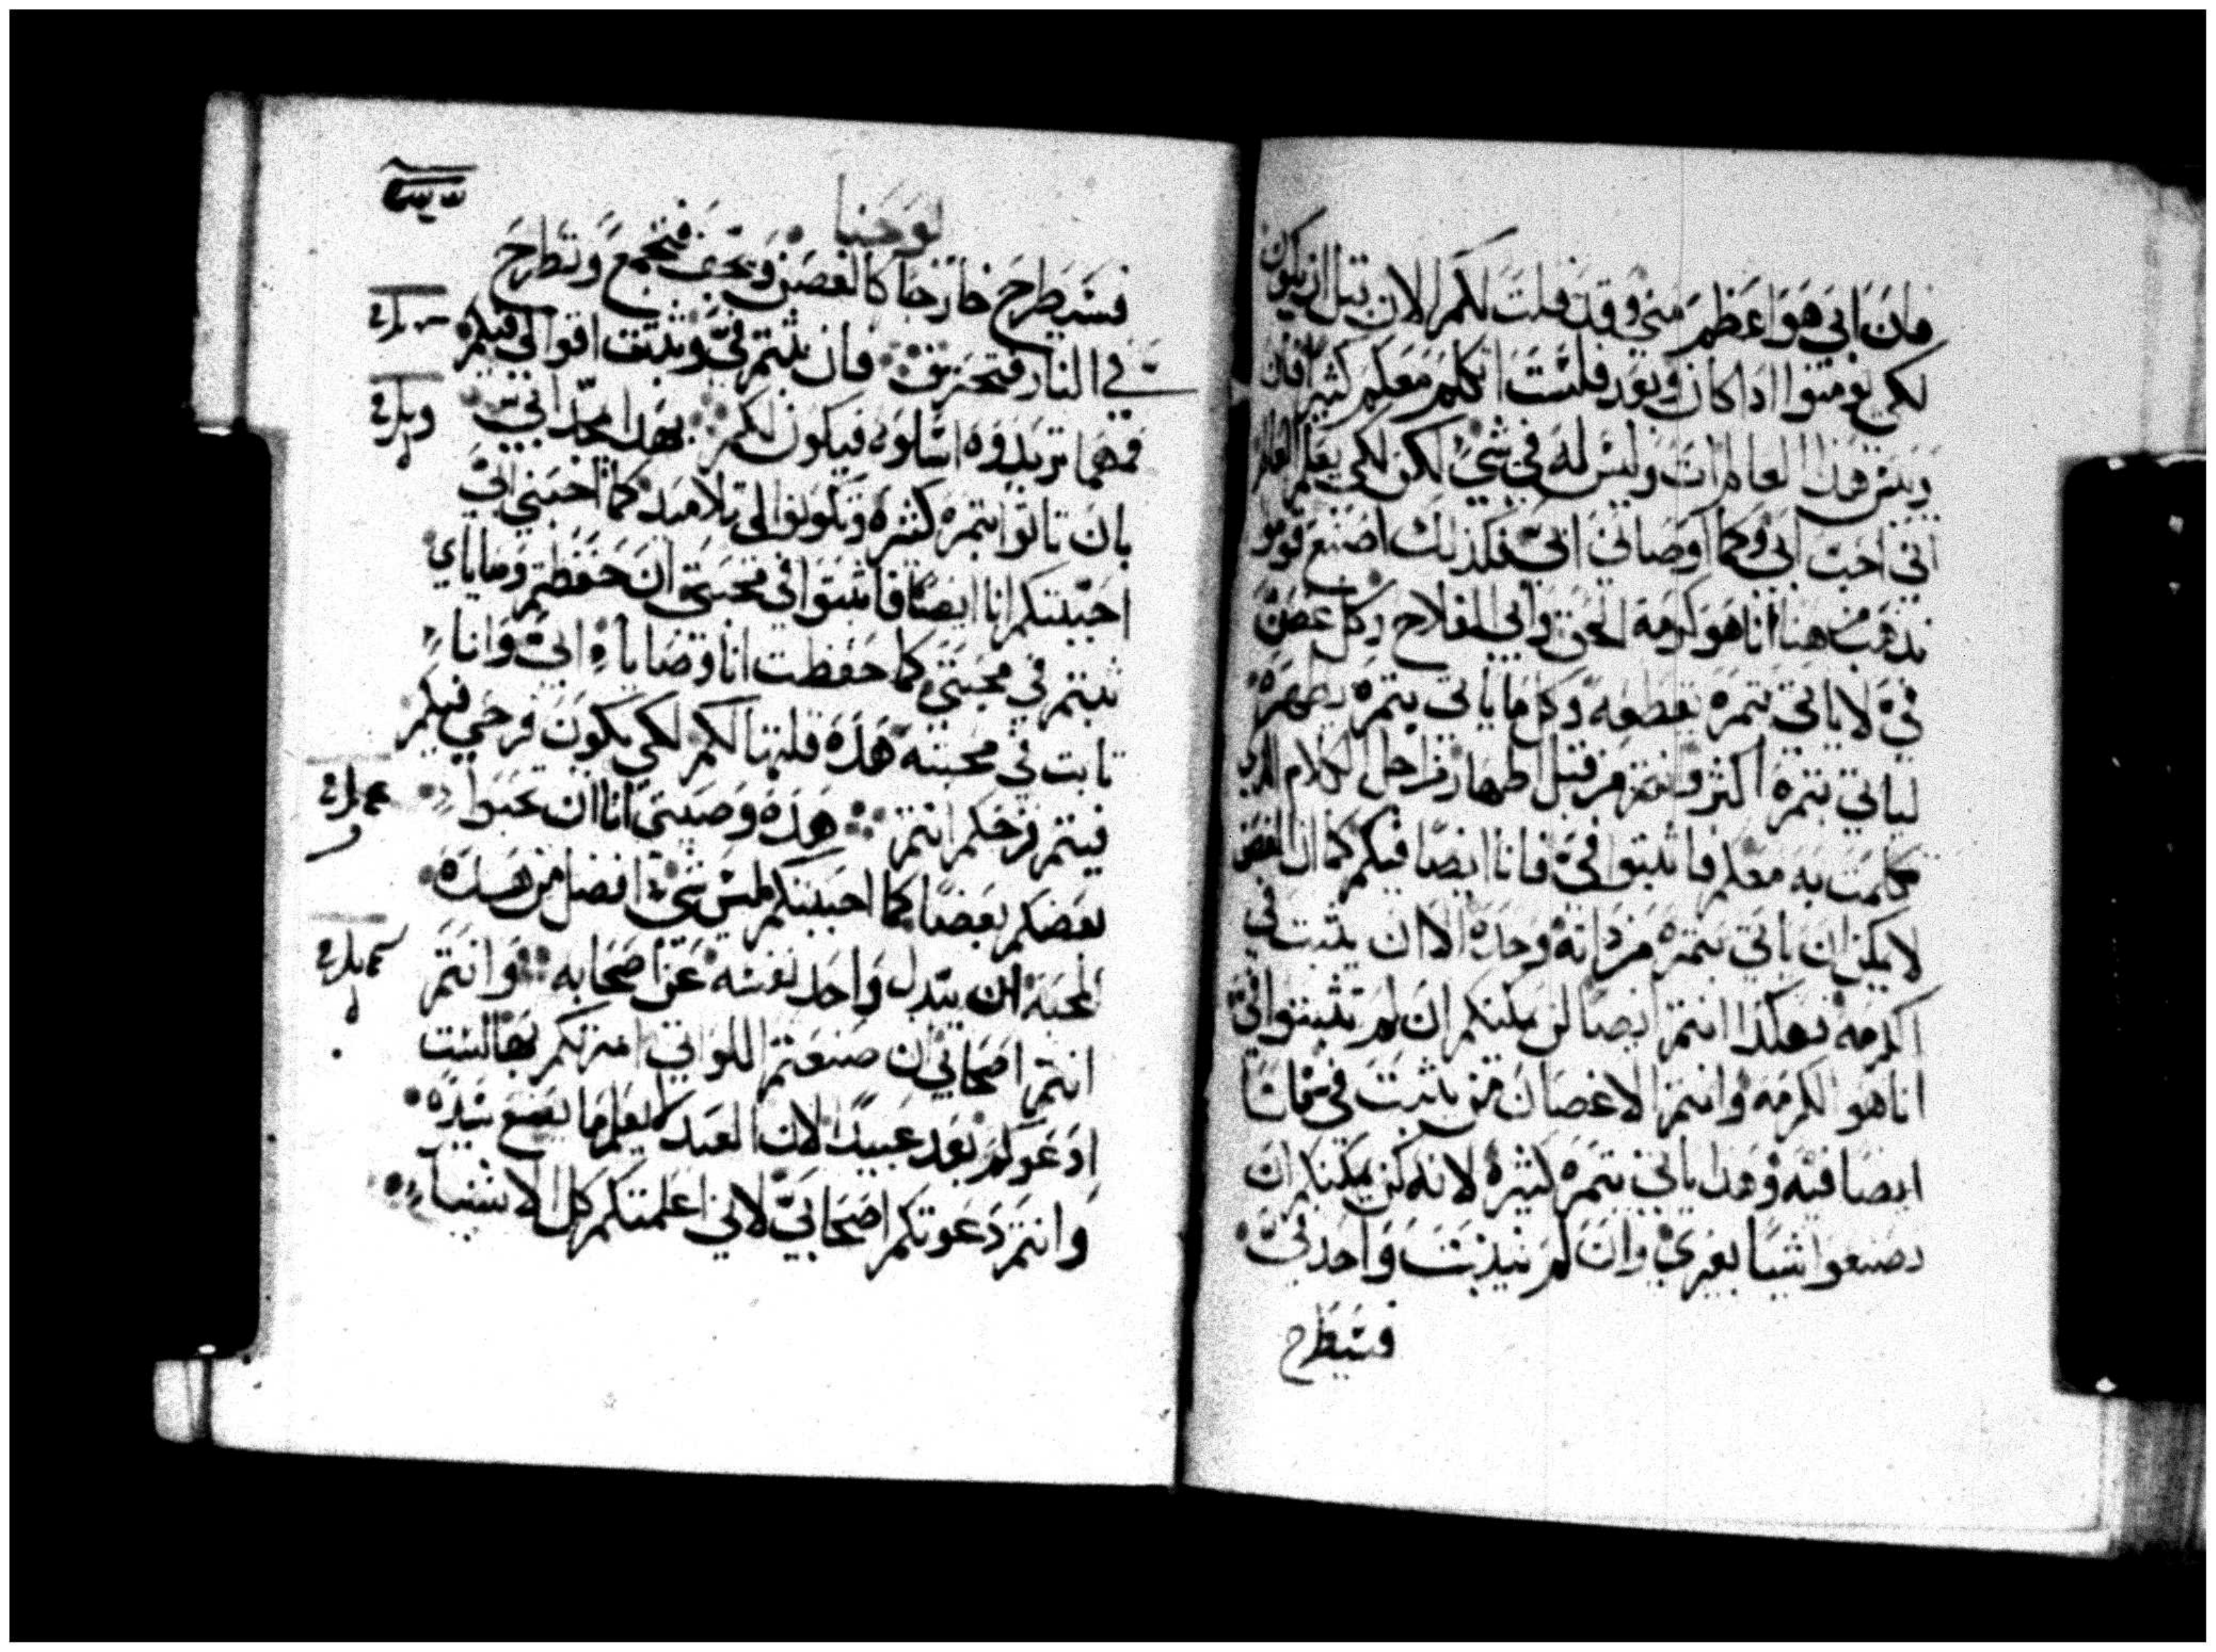 فان ابي هو اعظم مني وقد قلت لكم الان قبل ان يكون
لكي تومنوا اذا كان وبعد فلست اتكلم معكم كثيرا فان
العالم ات وليس له في شيء لكن لكي يعلم العالم
انني احب ابي وكما اوصاني ابي فكذلك اصنع قوموا
نذهب من هنا انا هو كرمة الحق وابي الفلاح وكل غصن
في لا ياتي بثمرة يقطعه وكل ما ياتي بثمرة يطهره
لياتي بثمرة اكثر وانتم من قبل اطهار من اجل الكلام الذي
كلمت به معكم فاثبتوا في فانا ايضا فيكم كما ان الغصن
لا يمكن ان ياتي بثمرة من ذاته وحده الا ان يثبت في
الكرمه فهكذا انتم ايضا لن يمكنكم ان لم تثبتوا في
انا هو الكرمه وانتم الاغصان من يثبت في
ايضا فيه وهذا ياتي بثمرة كثيرة لانه لن يمكنكم ان
تصنعوا شيا بغيري وان لم يثبت واحد في
فسيطرح
يوحنا
فسيطرح خارجا كالغصن ويجف فيجمع ويطرح
في النار فيحترق فان ثبتم في وثبتت اقوالي فيكم
فمهما تريدوه اسالوه فيكون لكم بهذا يمجد ابي
بان تاتوا بثمرة كثيرة وتكونوا لي تلاميذ كما احبني ابي
احببتكم انا ايضا فاثبتوا في محبتي ان حفظتم وصاياي
ثبتم في محبتي كما حفظت انا وصايا ابي وانا
ثابت في محبته هذه قلتها لكم لكي يكون فرحي فيكم
فيتم فرحكم انتم هذه وصيتي انا ان تحبوا
بعضكم بعضا كما احببتكم ليس شيء افضل من هذه
المحبة ان يبذل واحد نفسه عن اصحابه وانتم
انتم اصحابي ان صنعتم اللواتي امرتكم بها لست
ادعوكم بعد عبيدا لان العبد لا يعلم ما يصنع سيده
وانتم دعوتكم اصحابي لاني اعلمتكم كل الاشيا